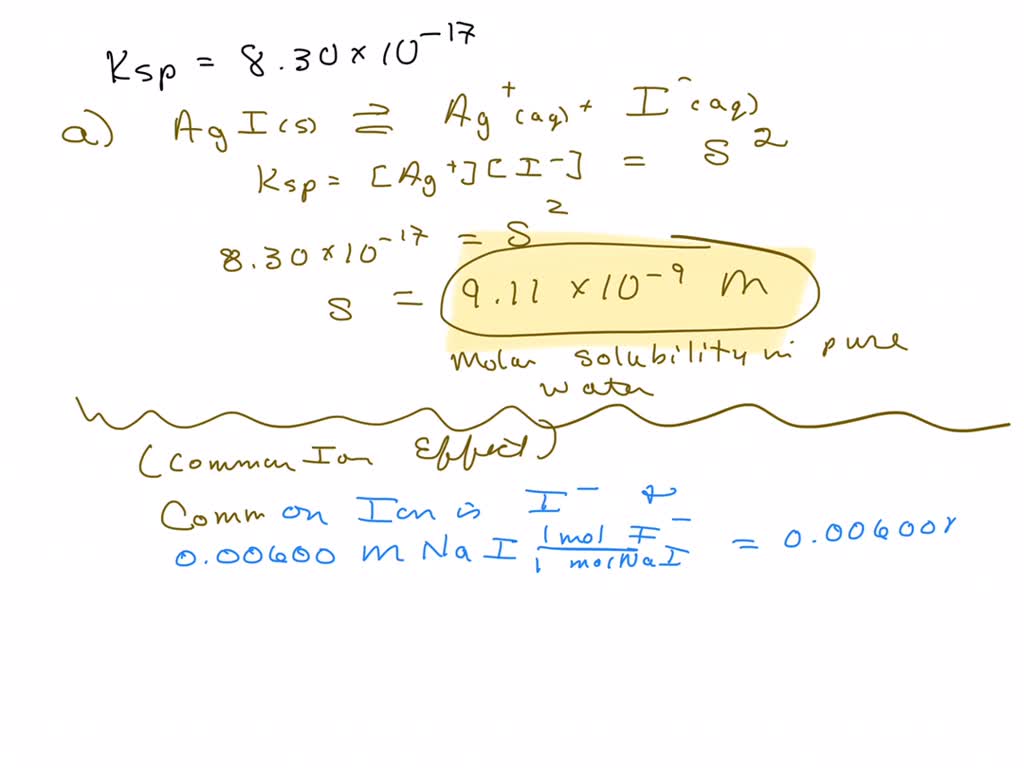 Ksp = 8.30 × 10⁻¹⁷
a) AgI(s) ⇌ Ag⁺(aq) + I⁻(aq)
Ksp = [Ag⁺][I⁻] = S²
8.30 × 10⁻¹⁷ = S²
S = 9.11 × 10⁻⁹ M
Molar solubility in pure
water
(Common Ion Effect)
Common Ion is I⁻
0.00600 M NaI 1 mol I⁻ / 1 mol NaI = 0.00600